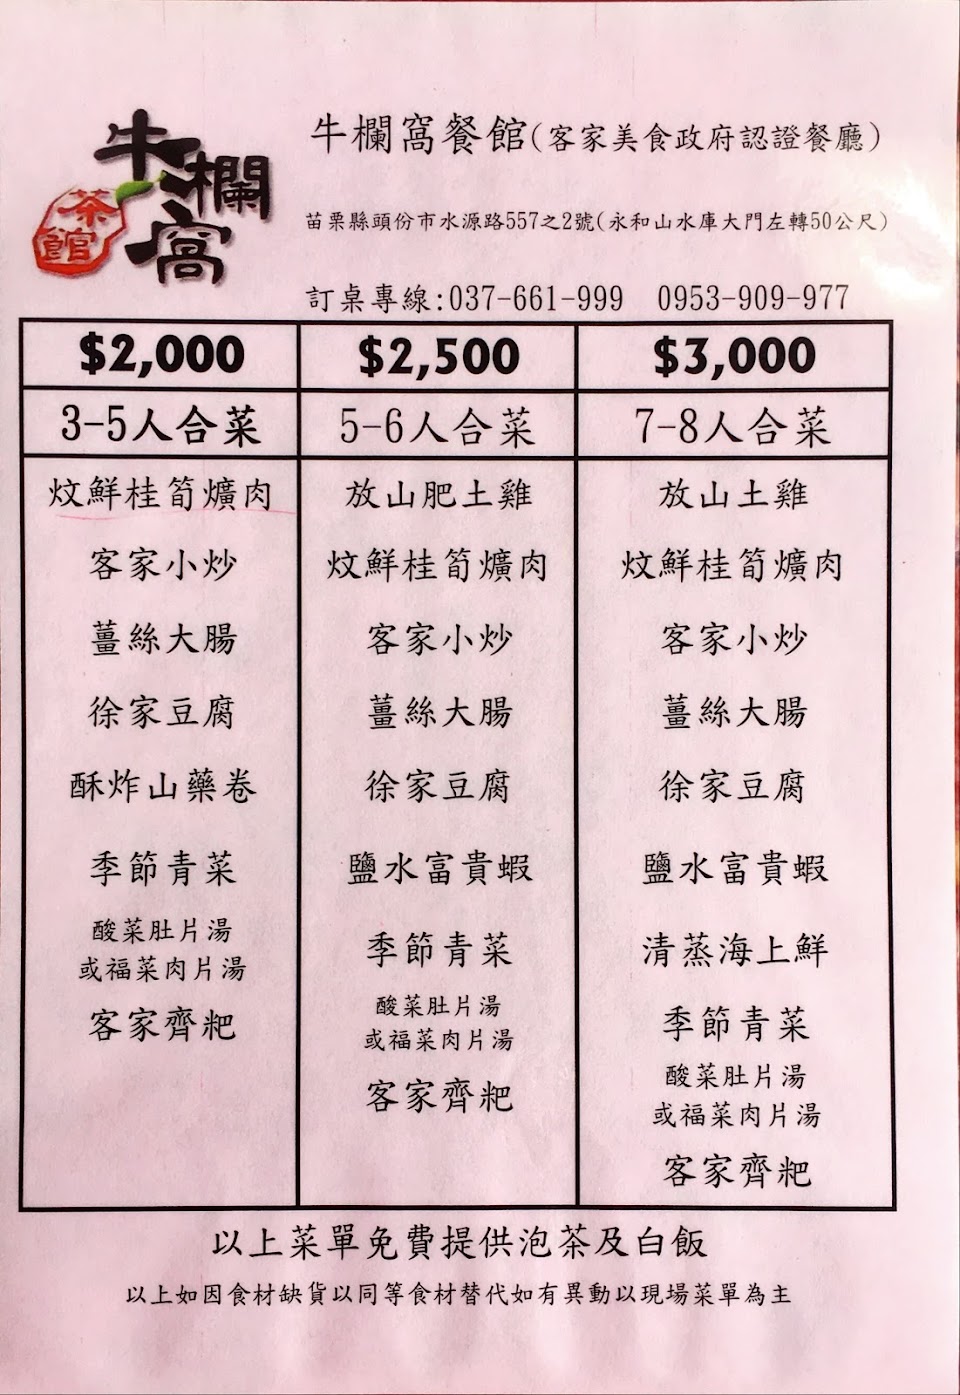 牛欄窩
茶館
牛欄窩餐館(客家美食政府認證餐廳)
苗栗縣頭份市水源路557之2號(永和山水庫大門左轉50公尺)
訂桌專線:037-661-999 0953-909-977
$2,000
3-5人合菜
炆鮮桂筍爌肉
客家小炒
薑絲大腸
徐家豆腐
酥炸山藥卷
季節青菜
酸菜肚片湯
或福菜肉片湯
客家齊粑
$2,500
5-6人合菜
放山肥土雞
炆鮮桂筍爌肉
客家小炒
薑絲大腸
徐家豆腐
鹽水富貴蝦
季節青菜
酸菜肚片湯
或福菜肉片湯
客家齊粑
$3,000
7-8人合菜
放山土雞
炆鮮桂筍爌肉
客家小炒
薑絲大腸
徐家豆腐
鹽水富貴蝦
清蒸海上鮮
季節青菜
酸菜肚片湯
或福菜肉片湯
客家齊粑
以上菜單免費提供泡茶及白飯
以上如因食材缺貨以同等食材替代如有異動以現場菜單為主